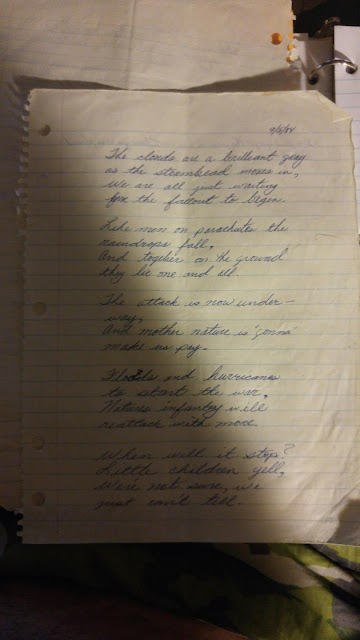 The clouds are a brilliant gray
as the steamhead moves in,
We are all just waiting
for the fallout to begin.
Like men on parachutes the
raindrops fall,
And together on the ground
they lie one and all.
The attack is now under-
way,
And mother nature is 'gonna'
make us pay.
Floods and hurricanes
to start the war,
Natures infantry will
reattack with more.
When will it stop?
Little children yell,
We're not sure, we
just can't tell.